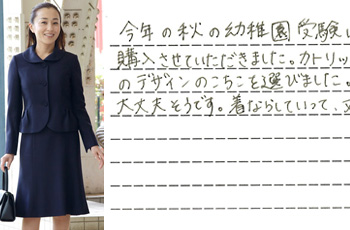 今年の秋の幼稚園受験
購入させていただきました。カトリッ
のデザインのこちらを選びました。
大丈夫そうです。着ならしていって、